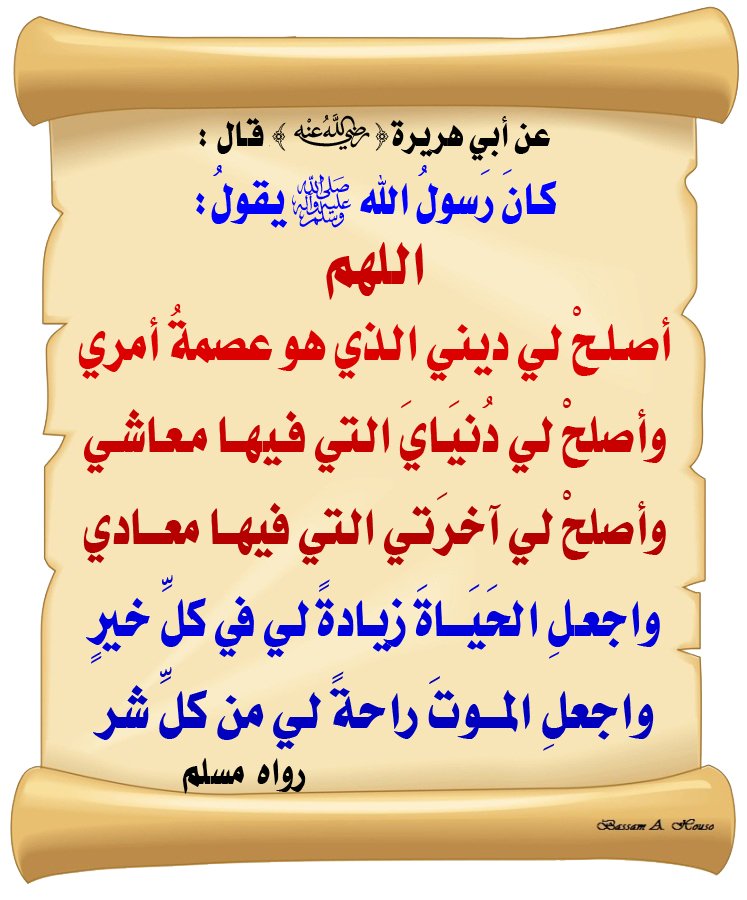 عن أبي هريرة ﴿ رضي الله عنه ﴾ قال :
كانَ رَسولُ الله ﷺ يقولُ :
اللهم
أصلحْ لي ديني الذي هو عصمةُ أمري
وأصلحْ لي دُنيَايَ التي فيها معاشي
وأصلحْ لي آخرَتي التي فيها معادي
واجعلِ الحَيَاةَ زيادةً لي في كلِّ خيرٍ
واجعلِ الموتَ راحةً لي من كلِّ شر
رواه مسلم
Bassam A. Houso